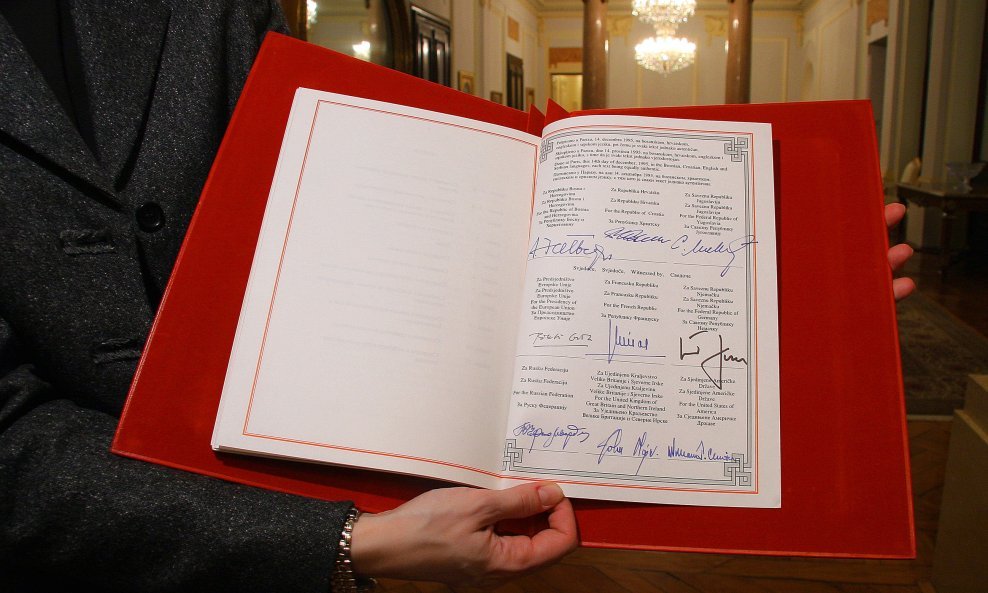 Potpisano u Parizu, 14. decembra 1995, na bosanskom, hrvatskom,
engleskom i srpskom jeziku, pri čemu je svaki tekst jednako autentičan.
Sklopljeno u Parizu, dne 14. prosinca 1995. na bosanskom, hrvatskom, engleskom i
srpskom jeziku, s time da je svaki tekst jednako vjerodostojan.
Done at Paris, this 14th day of December, 1995, in the Bosnian, Croatian, English and
Serbian languages, each text being equally authentic.
Za Republiku Bosnu i
Hercegovinu
Za Republiku Bosnu i
Hercegovinu
For the Republic of Bosnia
and Herzegovina
За Републику Босну и
Херцеговину
Za Republiku Hrvatsku
Za Republiku Hrvatsku
For the Republic of Croatia
За Републику Хрватску
Za Saveznu Republiku
Jugoslaviju
Za Saveznu Republiku
Jugoslaviju
For the Federal Republic of
Yugoslavia
За Савезну Републику
Југославију
Svjedoče, Svjedoče, Witnessed by, Сведоче
Za Predsjedništvo
Evropske Unije
Za Predsjedništvo
Europske Unije
For the Presidency of
the European Union
За Председништво
Европске Уније
Za Francusku Republiku
Za Francusku Republiku
For the French Republic
За Републику Француску
Za Saveznu Republiku
Njemačku
Za Saveznu Republiku
Njemačku
For the Federal Republic of
Germany
За Савезну Републику
Немачку
Za Rusku Federaciju
Za Rusku Federaciju
For the Russian Federation
За Руску Федерацију
Za Ujedinjeno Kraljevstvo
Velike Britanije i Sjeverne Irske
Za Ujedinjeno Kraljevinu
Velike Britanije i Sjeverne Irske
For the United Kingdom of
Great Britain and Northern Ireland
За Уједињено Краљевство
Велике Британије и Северне Ирске
Za Sjedinjene Američke
Države
Za Sjedinjene Američke
Države
For the United States of
America
За Сједињене Америчке
Државе
John Major